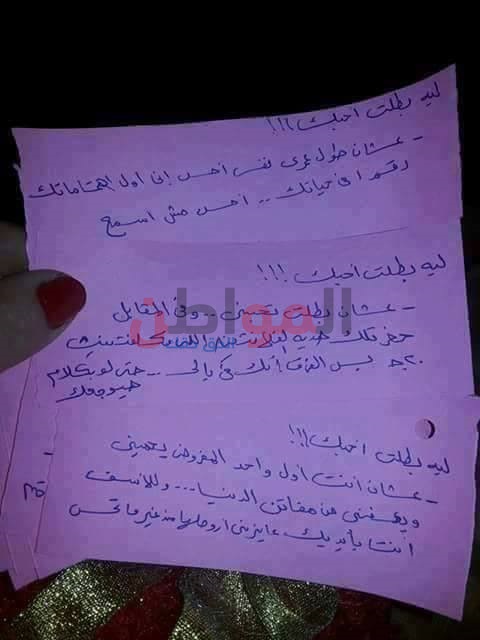 ليه بطلت احبك !!!
- عشان طول عمرى نفسى احس إنى اول اهتماماتك
رقم 1 فى حياتك .. احس مش اسمع
ليه بطلت احبك !!!
- عشان بطلت تحبنى .. وفى المقابل
المواطن
بس الفرق إنك فى بالى .. حتى لو بكلام
هيوجعك
ليه بطلت احبك !!!
- عشان انت اول واحد المفروض يحمينى
ويعفنى من مفاتن الدنيا ... وللأسف
انت بأيديك عايزنى اروحلها من غير ما تحس